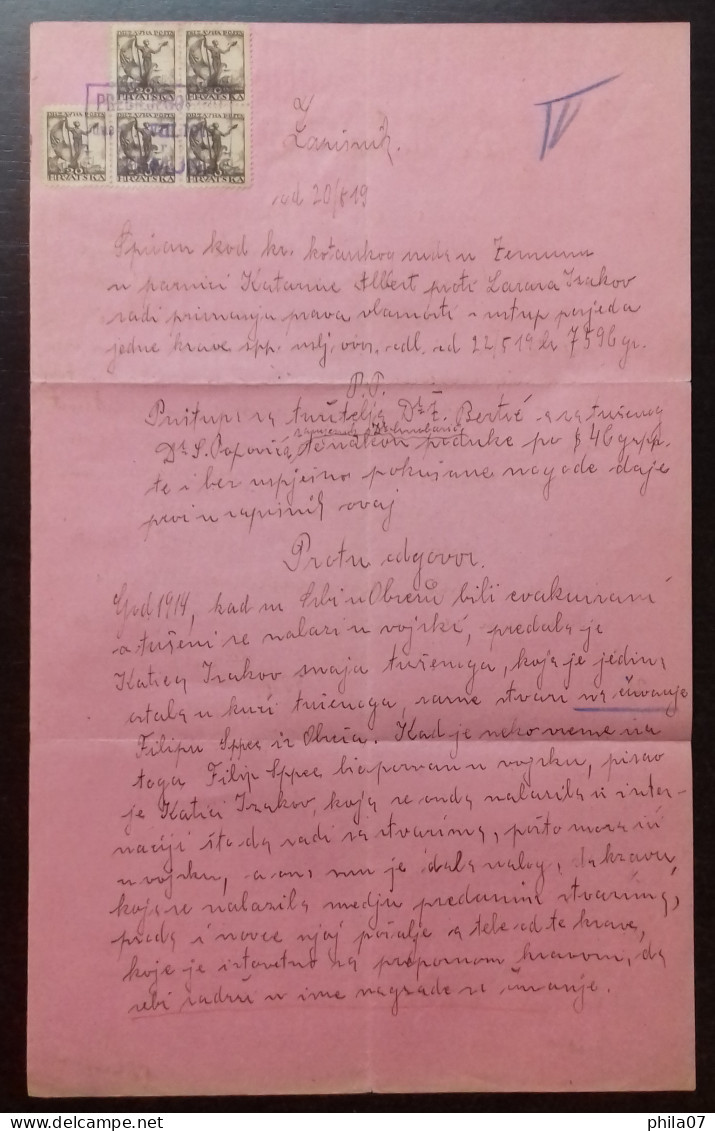 DRŽAVNA POŠTA
HRVATSKA
DRŽAVNA POŠTA
HRVATSKA
20
HRVATSKA
HRVATSKA
HRVATSKA
IV
Zapisnik.
od 20/8 19
Spisan kod kr. kotarskog suda u Zemunu
u parnici Katarine Albert proti Lazara Izakov
radi priznanja prava vlasnosti i ustup posjeda
jedne krave spp. uslj. ovos. odl. od 22/5 19 br 7596 gr.
P.P.
Pristupi za tužitelja Dr Ž. Bertić a za tuženog
Dr S. Popovića, nakon pouke po § 46 gr.p.p.
te i bez uspješno pokušane nagode daje
prvi u zapisnik ovaj
Protu odgovor.
God 1914, kad su Srbi u Obrežu bili evakuirani
a tuženi se nalazi u vojski, predala je
Katica Izakov snaja tuženoga, koja je jedina
ostala u kući tuženoga, razne stvari na čuvanje
Filipu Sppee iz Obreža. Kad je neko vreme iza
toga Filip Sppee bio pozvan u vojsku, pisao
je Katici Izakov, koja se onda nalazila u inter-
naciji šta da radi sa stvarima, pošto mora ići
u vojsku, a ona mu je dala nalog, da kravu
koja se nalazila medju predanim stvarima,
proda i novce njoj pošalje a tele od te krave,
koje je istovetno sa prepornom kravom, da
sebi zadrži u ime nagrade za čuvanje.
phila07